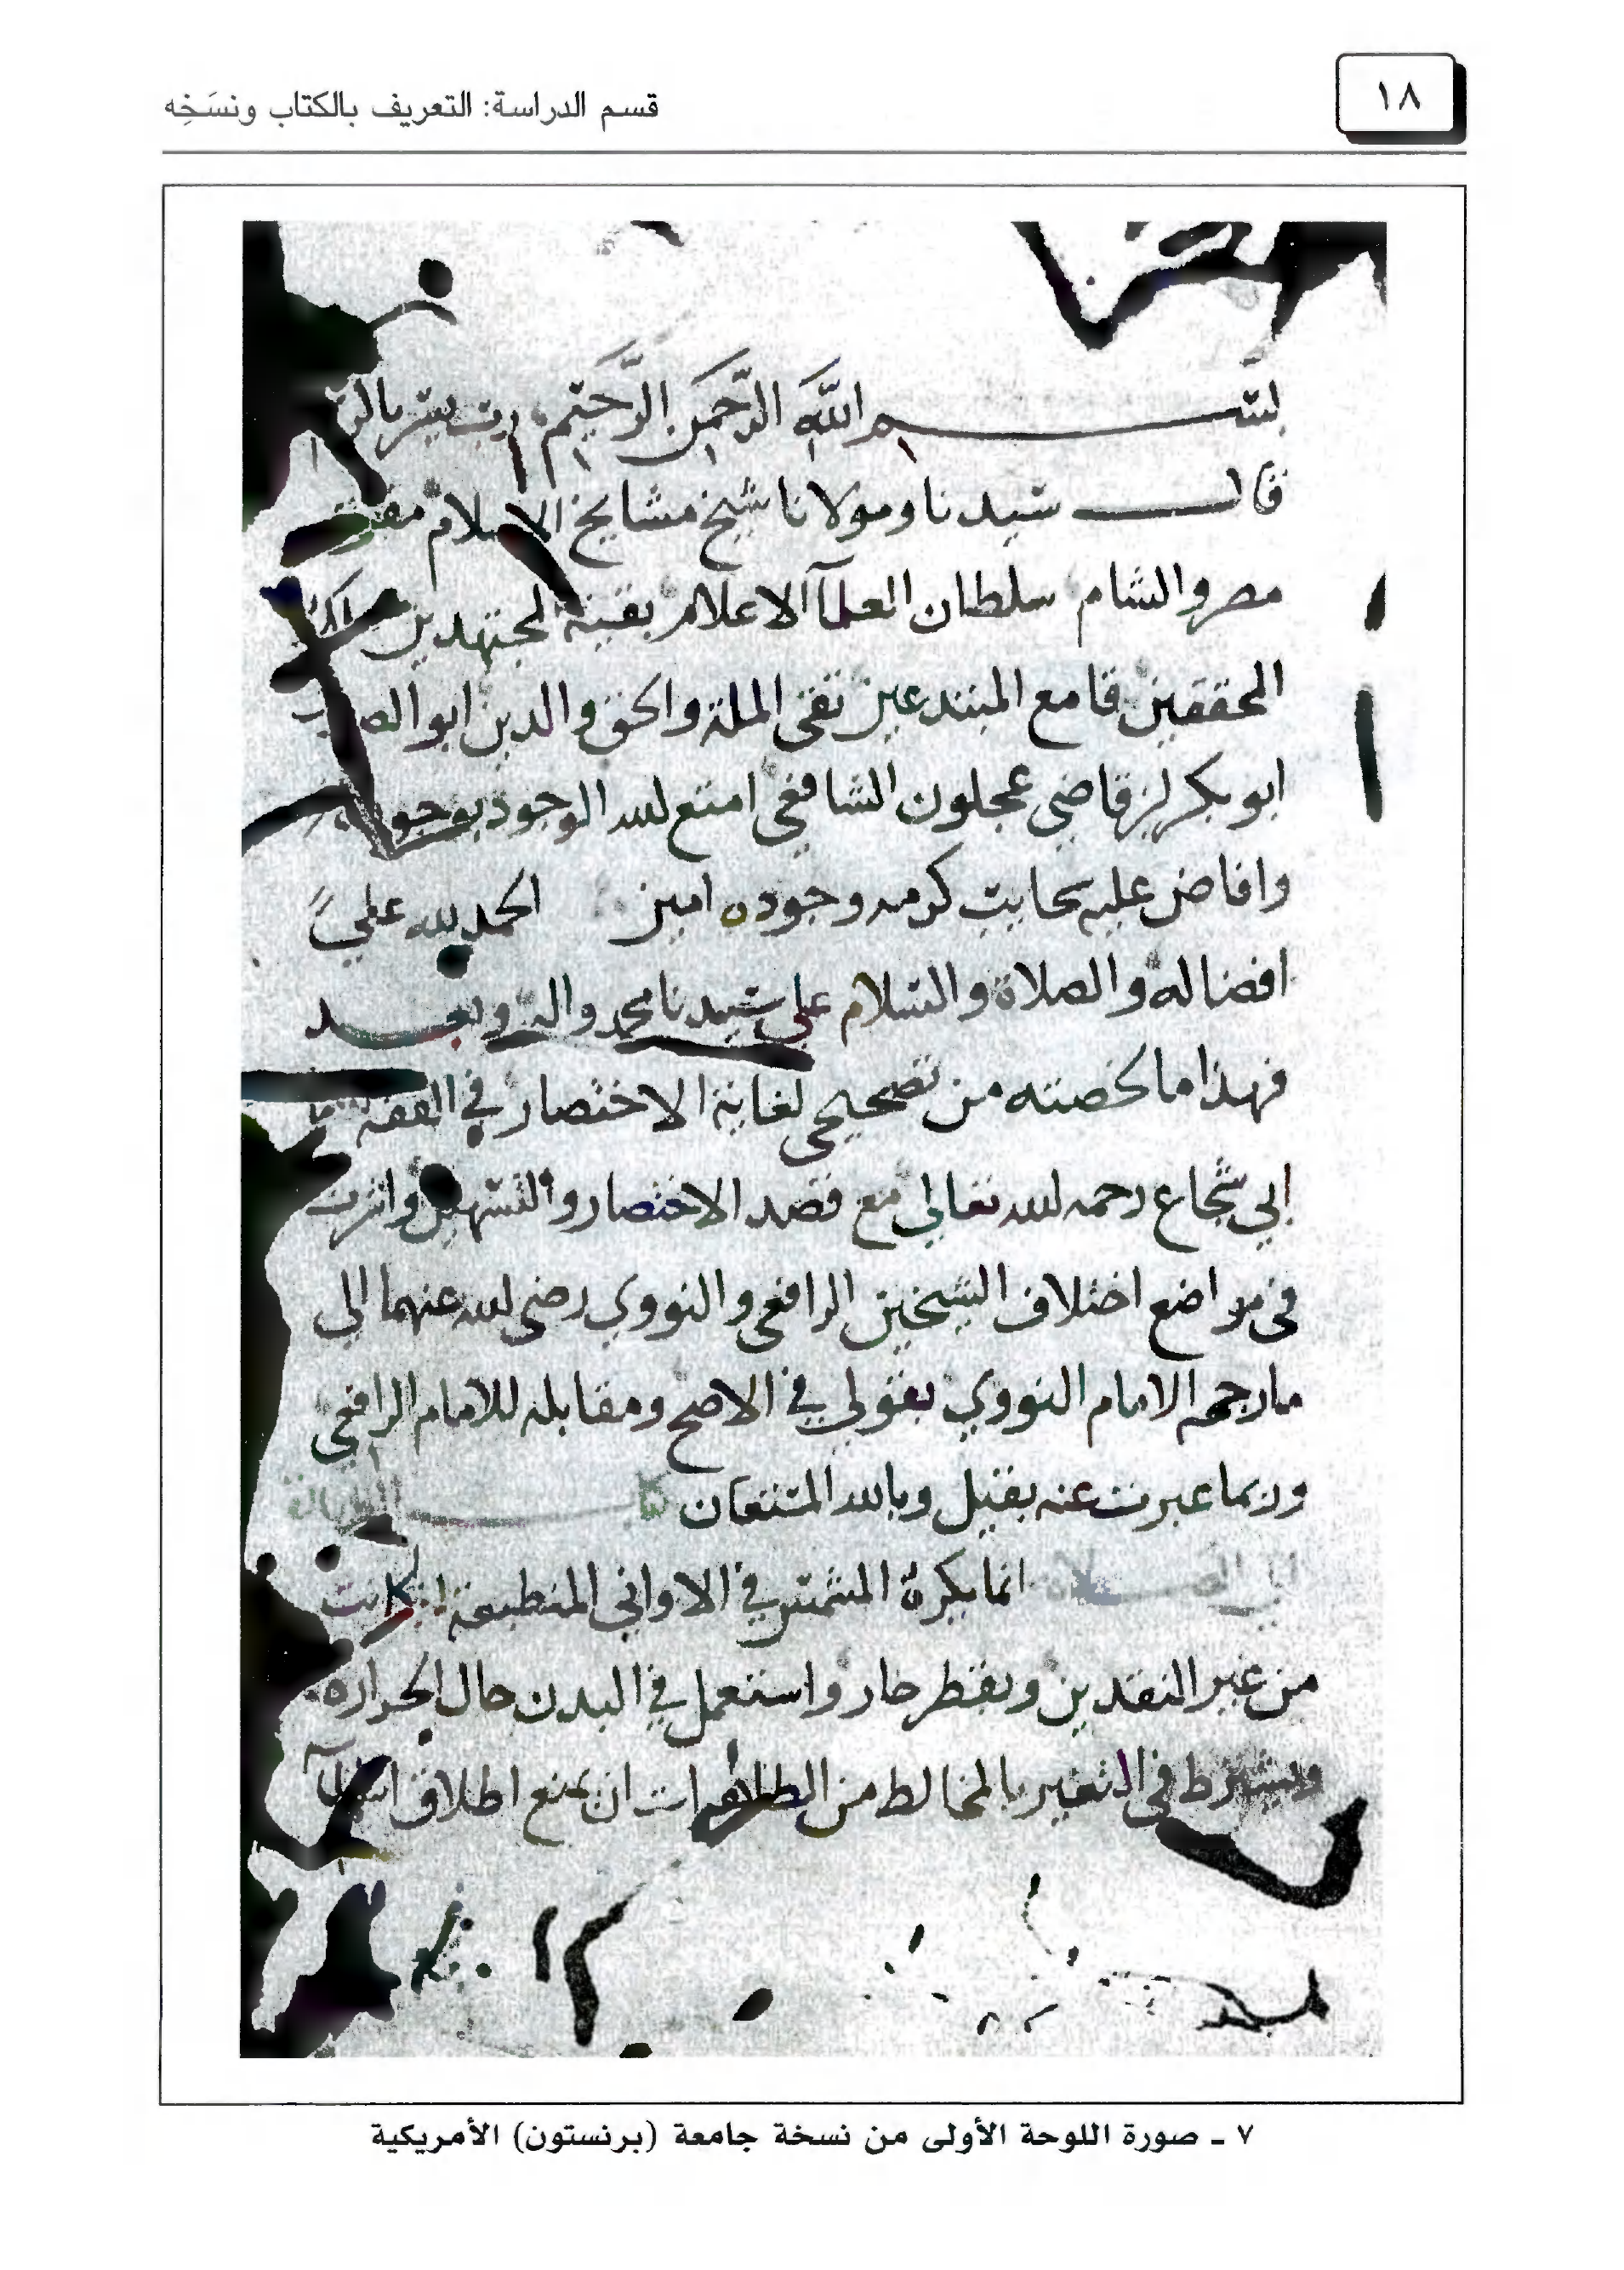 ١٨
قسم الدراسة: التعريف بالكتاب ونسَخِه
بسم الله الرَّحمن الرَّحيم رب يسر
قال سيدنا ومولانا شيخ مشايخ الاسلام
مصر والشام سلطان العلمآ الاعلام بقية المجتهدين
المحققين قامع المبتدعين تقي الملة والحق والدين ابو
ابو بكر بن قاضي عجلون الشافعي امتع الله الوجود بوجوده
وافاض عليه سحايب كرمه وجوده امين الحمد لله على
افضاله والصلاة والسلام على سيدنا محمد واله وبعد
فهذا ما لخصته من تصحيحي لغاية الاختصار في الفقه
ابي شجاع رحمه الله تعالى مع قصد الاختصار والتسهيل واشرت
في مواضع اختلاف الشيخين الرافعي والنووي رضي الله عنهما الى
ما رجحه الامام النووي بقولي في الاصح ومقابله للامام الرافعي
وربما عبرت عنه بقيل وبالله المستعان
الى الصلاة انما يكره المشمس في الاواني المنطبعة ان كانت
من غير النقدين وبقطر حار واستعمل في البدن حال الحرارة
ويشترط في التغير بالمخالط من الطاهرات ان يمنع اطلاق اسم المآ
٧ ـ صورة اللوحة الأولى من نسخة جامعة (برنستون) الأمريكية